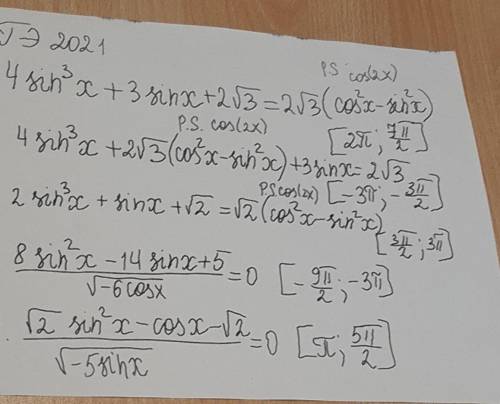 ЕГЭ 2021
P.S. cos(2x)
4 sin³x + 3 sinx + 2√3 = 2√3 (cos²x - sin²x)
P.S. cos(2x) [2π; 7π/2]
4 sin³x + 2√3 (cos²x - sin²x) + 3 sinx = 2√3
P.S cos(2x) [-3π; -3π/2]
2 sin³x + sinx + √2 = √2 (cos²x - sin²x)
[3π/2; 3π]
(8 sin²x - 14 sinx + 5)/√(-6cosx) = 0 [-9π/2; -3π]
(√2 sin²x - cosx - √2)/√(-5sinx) = 0 [π; 5π/2]